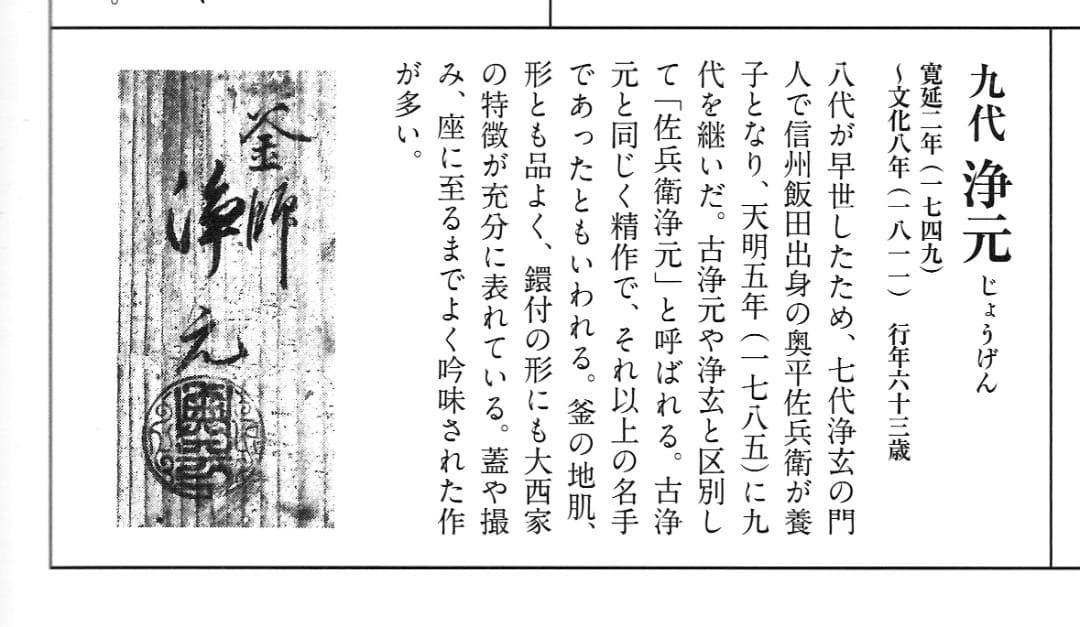 九代 浄元 じょうげん
寛延二年(一七四九)
〜文化八年(一八一一) 行年六十三歳
八代が早世したため、七代浄玄の門
人で信州飯田出身の奥平佐兵衛が養
子となり、天明五年(一七八五)に九
代を継いだ。古浄元や浄玄と区別し
て「佐兵衛浄元」と呼ばれる。古浄
元と同じく精作で、それ以上の名手
であったともいわれる。釜の地肌、
形とも品よく、鐶付の形にも大西家
の特徴が充分に表れている。蓋や撮
み、座に至るまでよく吟味された作
が多い。
釜師
浄元